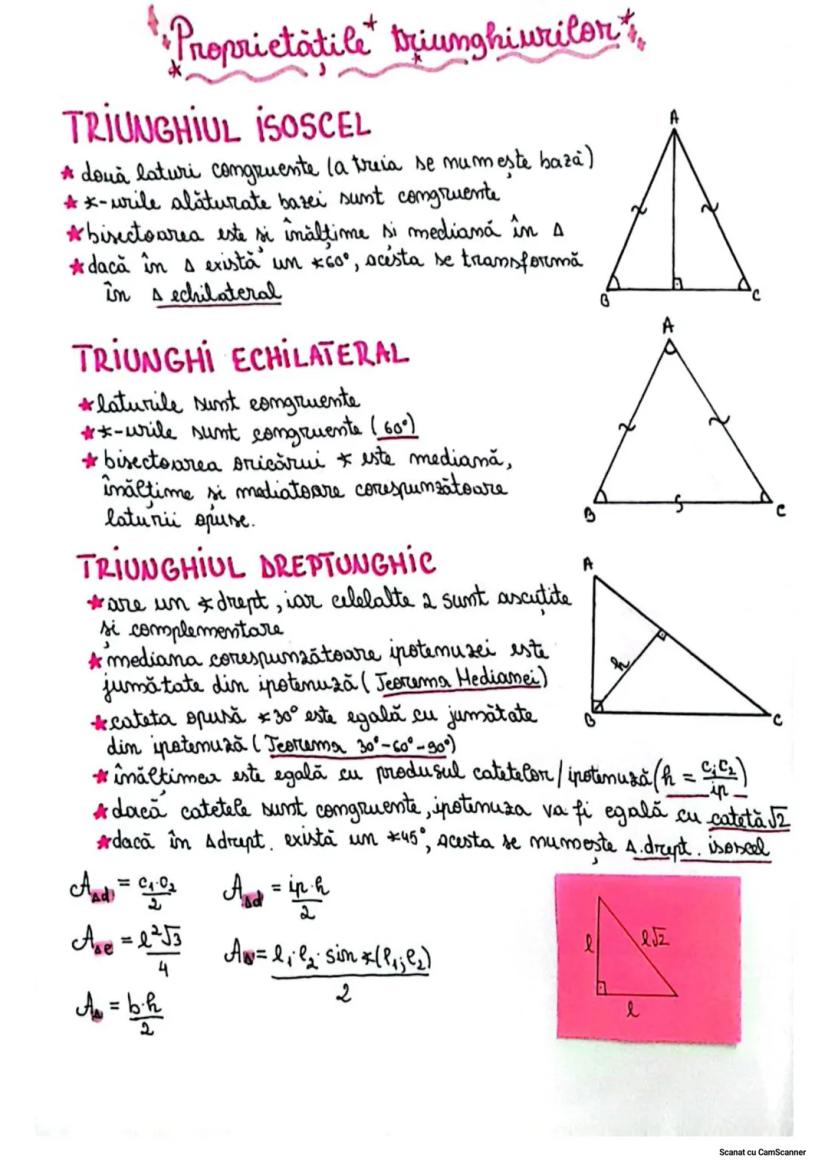 Proprietățile triunghiurilor
TRIUNGHIUL ISOSCEL
★ două laturi congruente (a treia se numește bază)
★ ∢-urile alăturate bazei sunt congruente
★ bisectoarea este și înălțime și mediană în Δ
★ dacă în Δ există un ∢60°, acesta se transformă
în Δ echilateral
A
B
C
TRIUNGHI ECHILATERAL
★ laturile sunt congruente
★ ∢-urile sunt congruente (60°)
★ bisectoarea oricărui ∢ este mediană,
înălțime și mediatoare corespunzătoare
laturii opuse.
A
B
C
TRIUNGHIUL DREPTUNGHIC
★ are un ∢ drept, iar celelalte 2 sunt ascuțite
și complementare
★ mediana corespunzătoare ipotenuzei este
jumătate din ipotenuză (Teorema Medianei)
★ cateta opusă ∢30° este egală cu jumătate
din ipotenuză (Teorema 30°-60°-90°)
★ înălțimea este egală cu produsul catetelor/ipotenuză (h = c₁·c₂/ip)
★ dacă catetele sunt congruente, ipotenuza va fi egală cu catetă√2
★ dacă în Δdrept. există un ∢45°, acesta se numește Δ.drept. isoscel
A
h
B
C
A_Δd = c₁·c₂/2
A_Δd = ip·h/2
A_Δe = l²√3/4
A_Δ = l₁·l₂·sin∢(l₁;l₂)/2
A_Δ = b·h/2
l
l√2
l
Scanat cu CamScanner